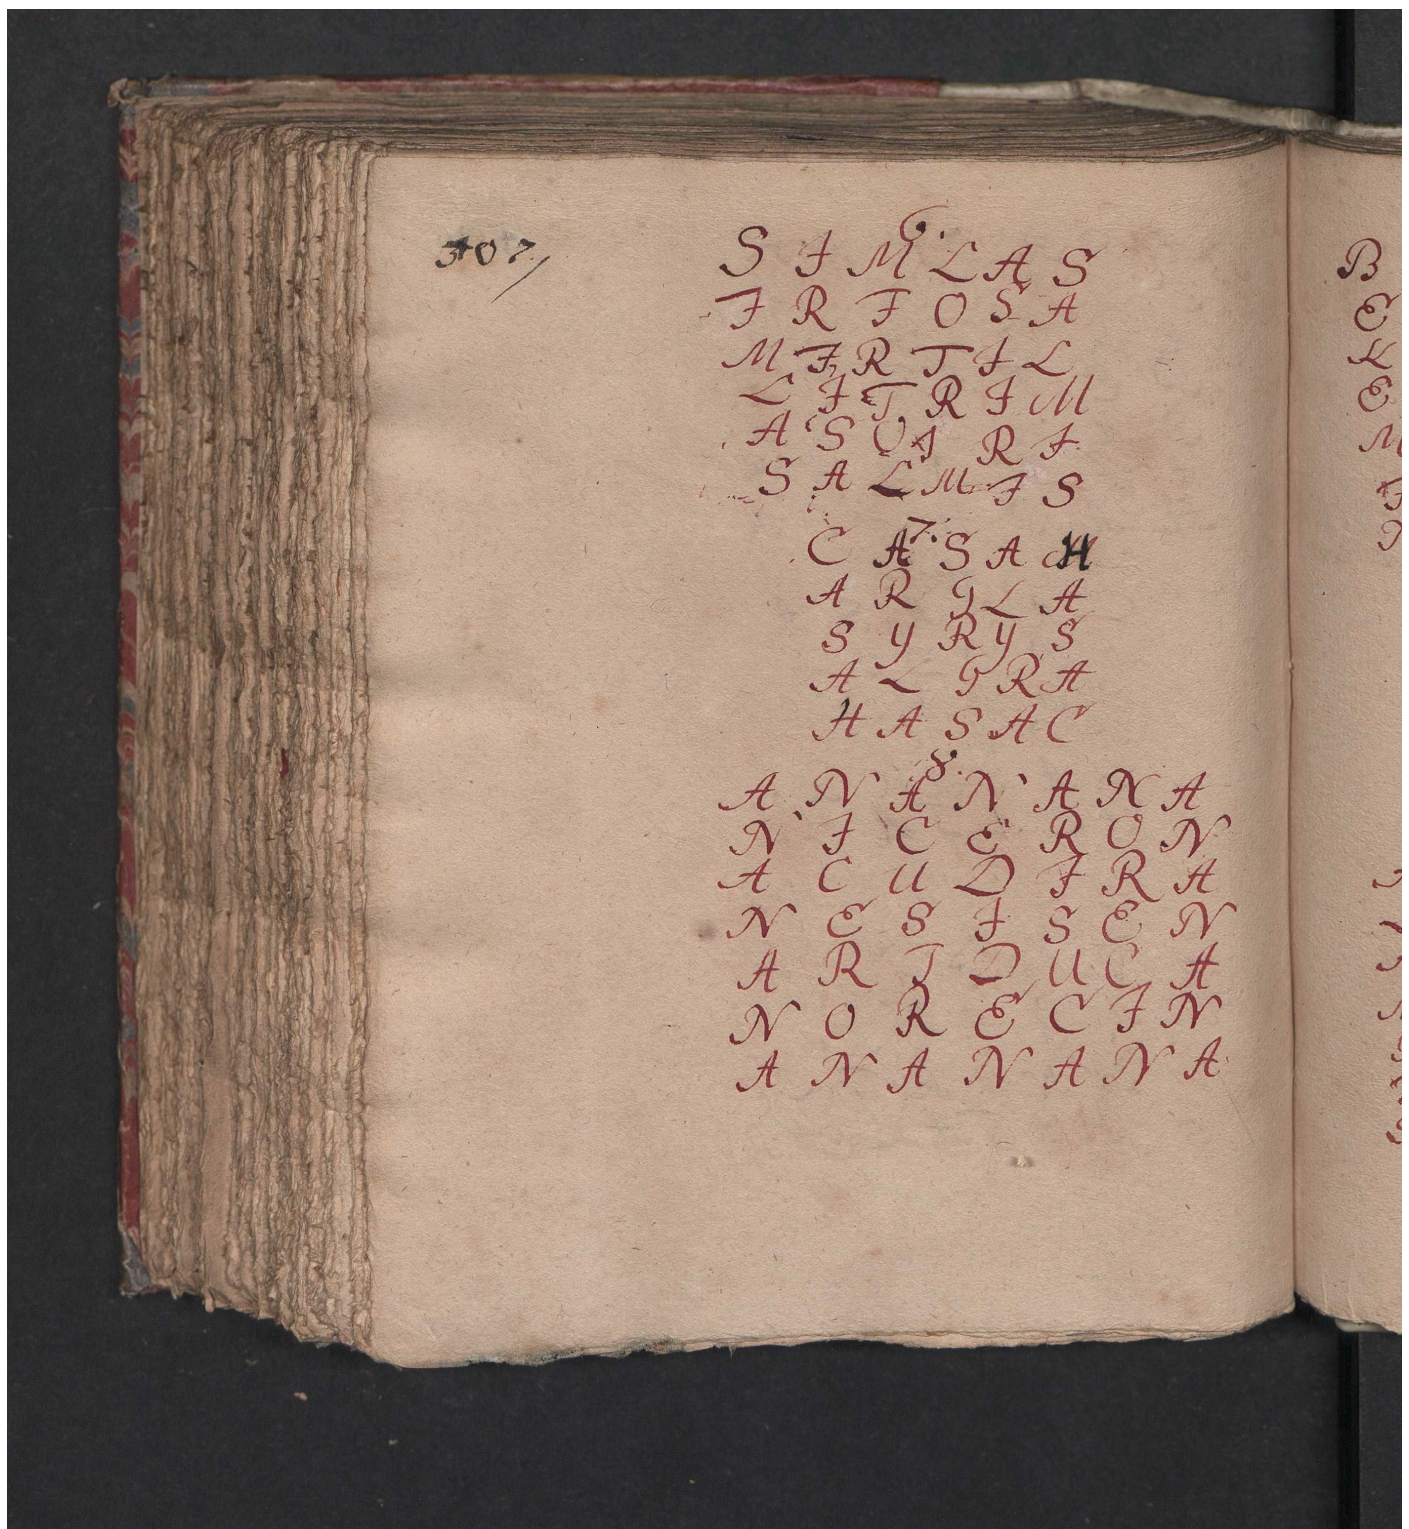 307/
6.
S I M L A S
I R I O S A
M I R T I L
L I T R I M
A S O I R I
S A L M I S
7.
C A S A H
A R I L A
S Y R Y S
A L I R A
H A S A C
8.
A N A N A N A
N I C E R O N
A C U D I R A
N E S I S E N
A R I D U C A
N O R E C I N
A N A N A N A
B
E
K
E
M